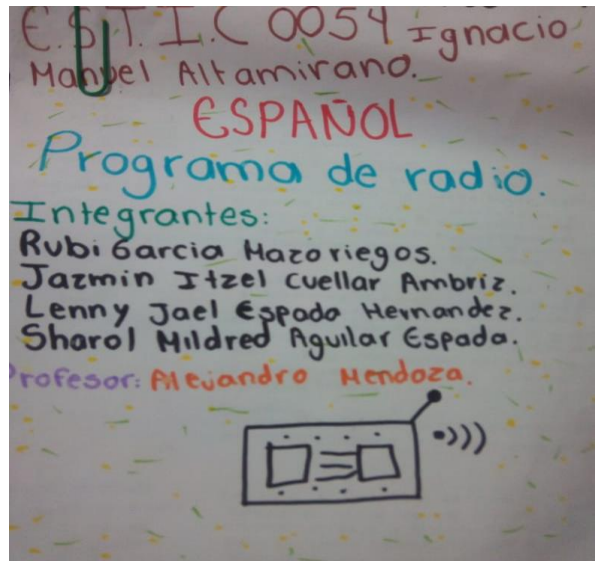 E.S.T.I.C 0054 Ignacio
Manuel Altamirano.
ESPAÑOL
Programa de radio.
Integrantes:
Rubi Garcia Mazoriegos.
Jazmin Itzel Cuellar Ambriz.
Lenny Jael Espada Hernandez.
Sharol Mildred Aguilar Espada.
Profesor: Alejandro Mendoza.